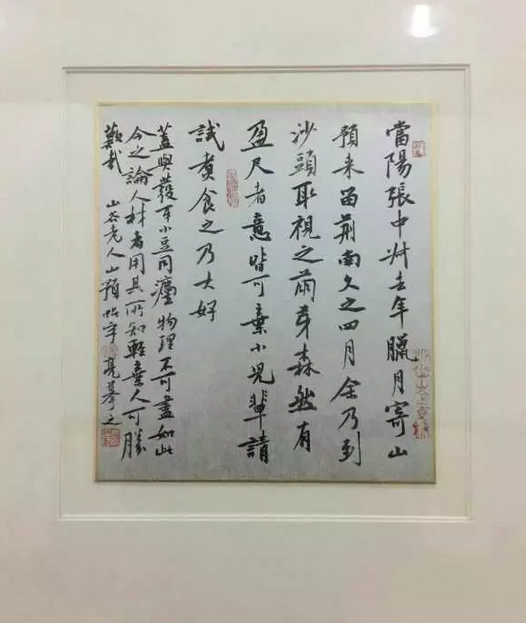 當陽張中叔去年臘月寄山
預来留荆南久之四月余乃到
沙頭取視之萌芽森然有
盈尺者意皆可棄小兒輩請
試煮食之乃大好
蓋與發牙小豆同灋物理不可盡如此
今之論人材者用其所知輕棄人可勝
歎哉 山谷老人山預帖 亮摹之